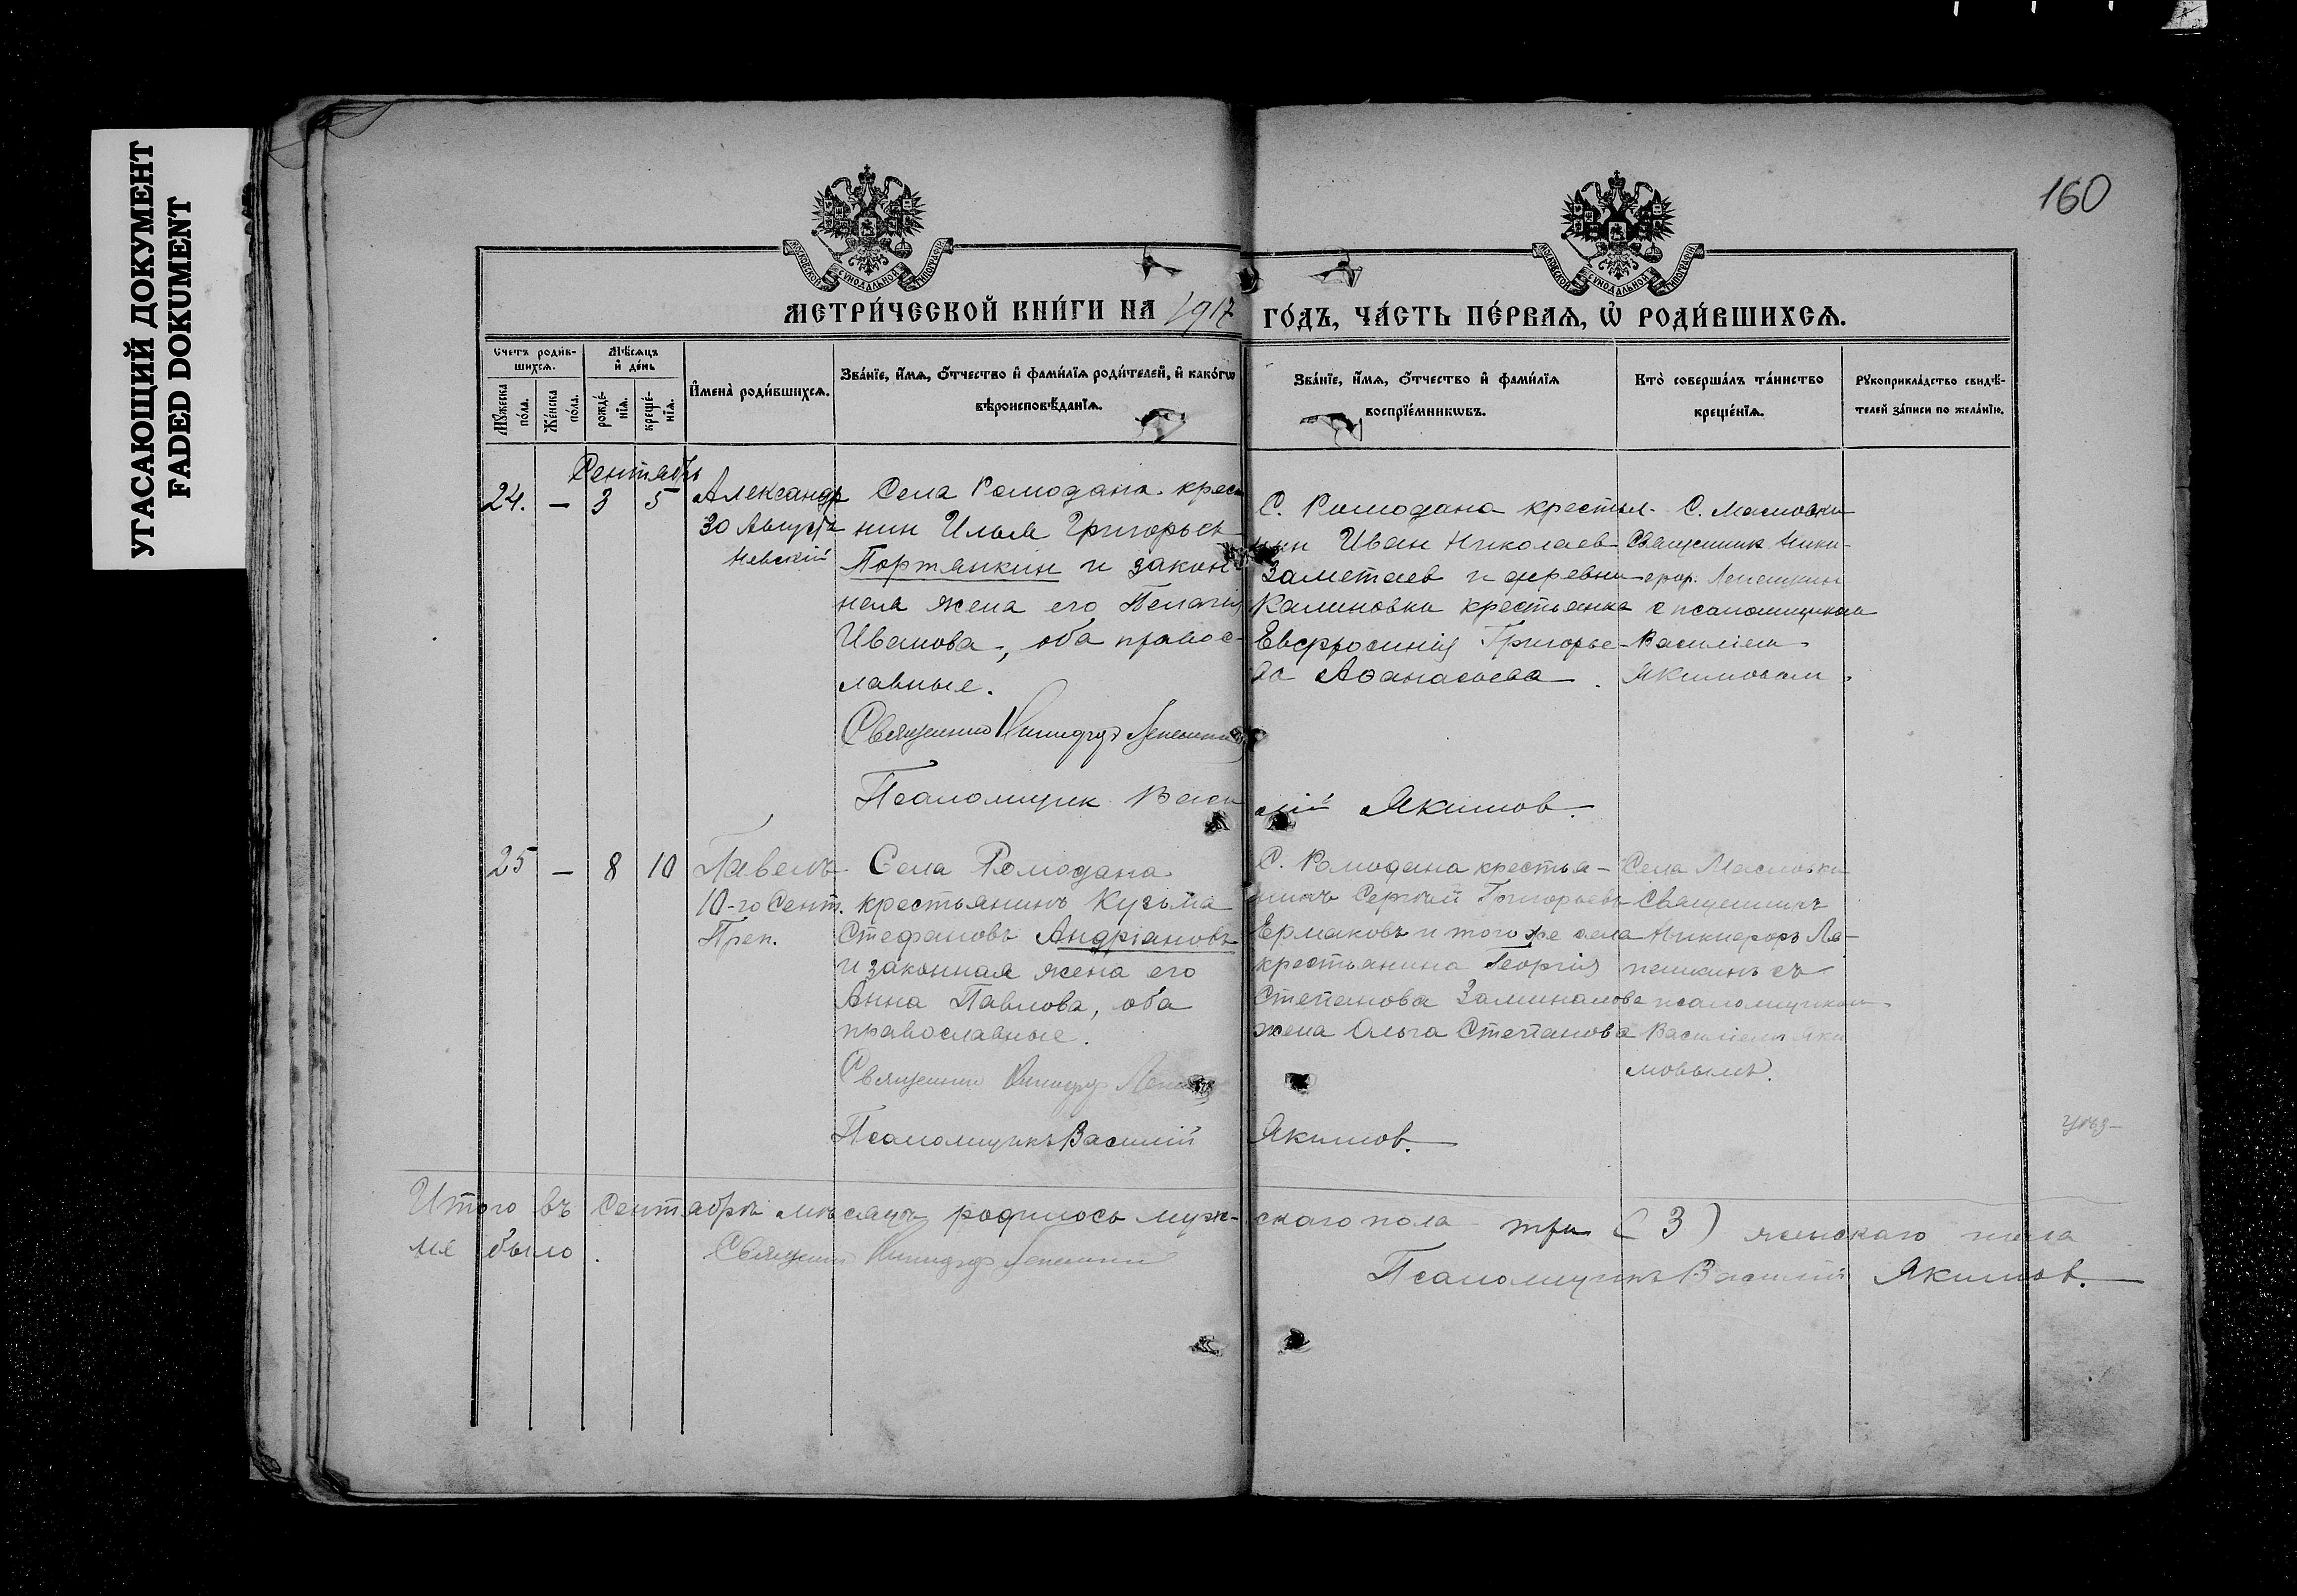 УГАСАЮЩИЙ ДОКУМЕНТ
FADED DOKUMENT
160
МОСКОВСКОЙ СѴНОДАЛЬНОЙ ТИПОГРАФІИ
МОСКОВСКОЙ СѴНОДАЛЬНОЙ ТИПОГРАФІИ
МЕТРИ́ЧЕСКОЙ КНИ́ГИ НА 1917 ГО́ДЪ, ЧА́СТЬ ПЕ́РВАЯ, Ѡ РОДИ́ВШИХСЯ.
Счетъ роди́в-
шихся.
Мꙋжеска
по́ла.
Же́нска
по́ла.
Мѣ́сяцъ
и҆ де́нь
рожде́-
нїя.
креще́-
нїя.
И҆мена̀ роди́вшихся.
Зва́нїе, и҆́мя, ѻ҆́тчество и҆ фами́лїя роди́телей, и҆ како́гѡ
вѣроисповѣ́данїя.
Зва́нїе, и҆́мя, ѻ҆́тчество и҆ фами́лїя
воспрїе́мникѡвъ.
Кто̀ соверша́лъ та́инство
креще́нїя.
Рꙋкоприкла́дство свидѣ́-
телей за́писи по жела́нїю.
Сентябрь
24. — 3 5
Александр
30 Августа
Невскій
Села Ромодана крестья
нин Илья Григорьев
Портянкин и закон
ная жена его Пелагія
Иванова, оба правос-
лавные.
Священник Никифор Лепешкин
Псаломщик Василій Якимов.
С. Ромодана крестья-
нин Иван Николаев
Заметаев и деревни
Калиновки крестьянка
Евфросинія Григорье-
ва Аѳанасьева.
С. Масловки
Священник Ники-
фор. Лепешкин
с псаломщиком
Василіем
Якимовым.
25 — 8 10
Павелъ
10-го Сент.
Преп.
Села Ромодана
крестьянинъ Кузьма
Стефановъ Андріановъ
и законная жена его
Анна Павлова, оба
православные.
Священник Никифор Лепешкин
Псаломщикъ Василій Якимов.
С. Ромодана крестья-
нинъ Сергѣй Григорьевъ
Ермаковъ и того же села
крестьянина Георгія
Степанова
жена Ольга Степанова
Села Масловки
Священникъ
Никифоръ Ле-
пешкинъ съ
псаломщиком
Василіемъ Яки
мовымъ.
Итого въ Сентябрѣ мѣсяцѣ родилось муж-скаго пола три (3) женскаго пола
не было.
Священник Никифор Лепешкин
Псаломщикъ Василій Якимов.